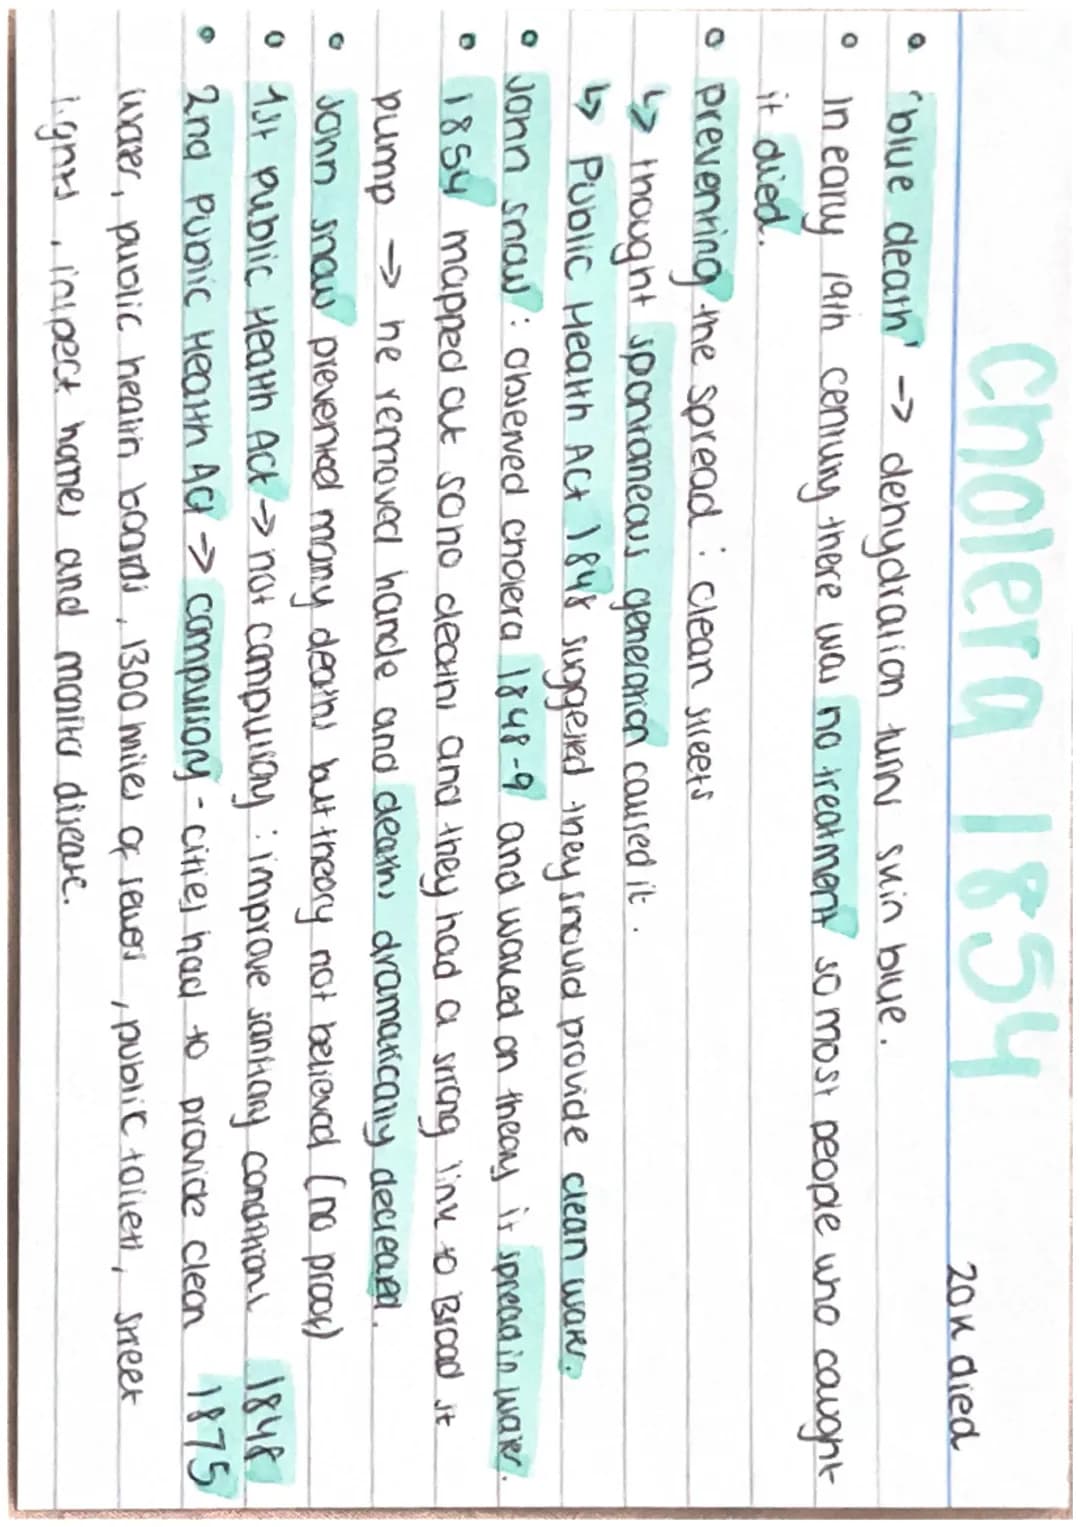 Cholera 1854
20K died
"blue death" -> dehydration turns skin blue.
In early 19th century there was no treatment so most people who caught
it died.
preventing the spread : clean streets
↳ thought spontaneous generation caused it.
↳ Public Health Act 1848 suggested they should provide clean water.
John Snow : observed cholera 1848-9 and worked on theory it spread in water.
1854 mapped out soho deaths and they had a strong link to Broad st
pump -> he removed handle and deaths dramatically decreased.
John Snow prevented many deaths but theory not believed (no proof)
1st public Health Act -> not compulsory : improve sanitary conditions 1848
2nd Public Health Act -> compulsory - cities had to provide clean 1875
water, public health boards, 1300 miles of sewers, public toilets, street
lights, inspect homes and monitor disease.